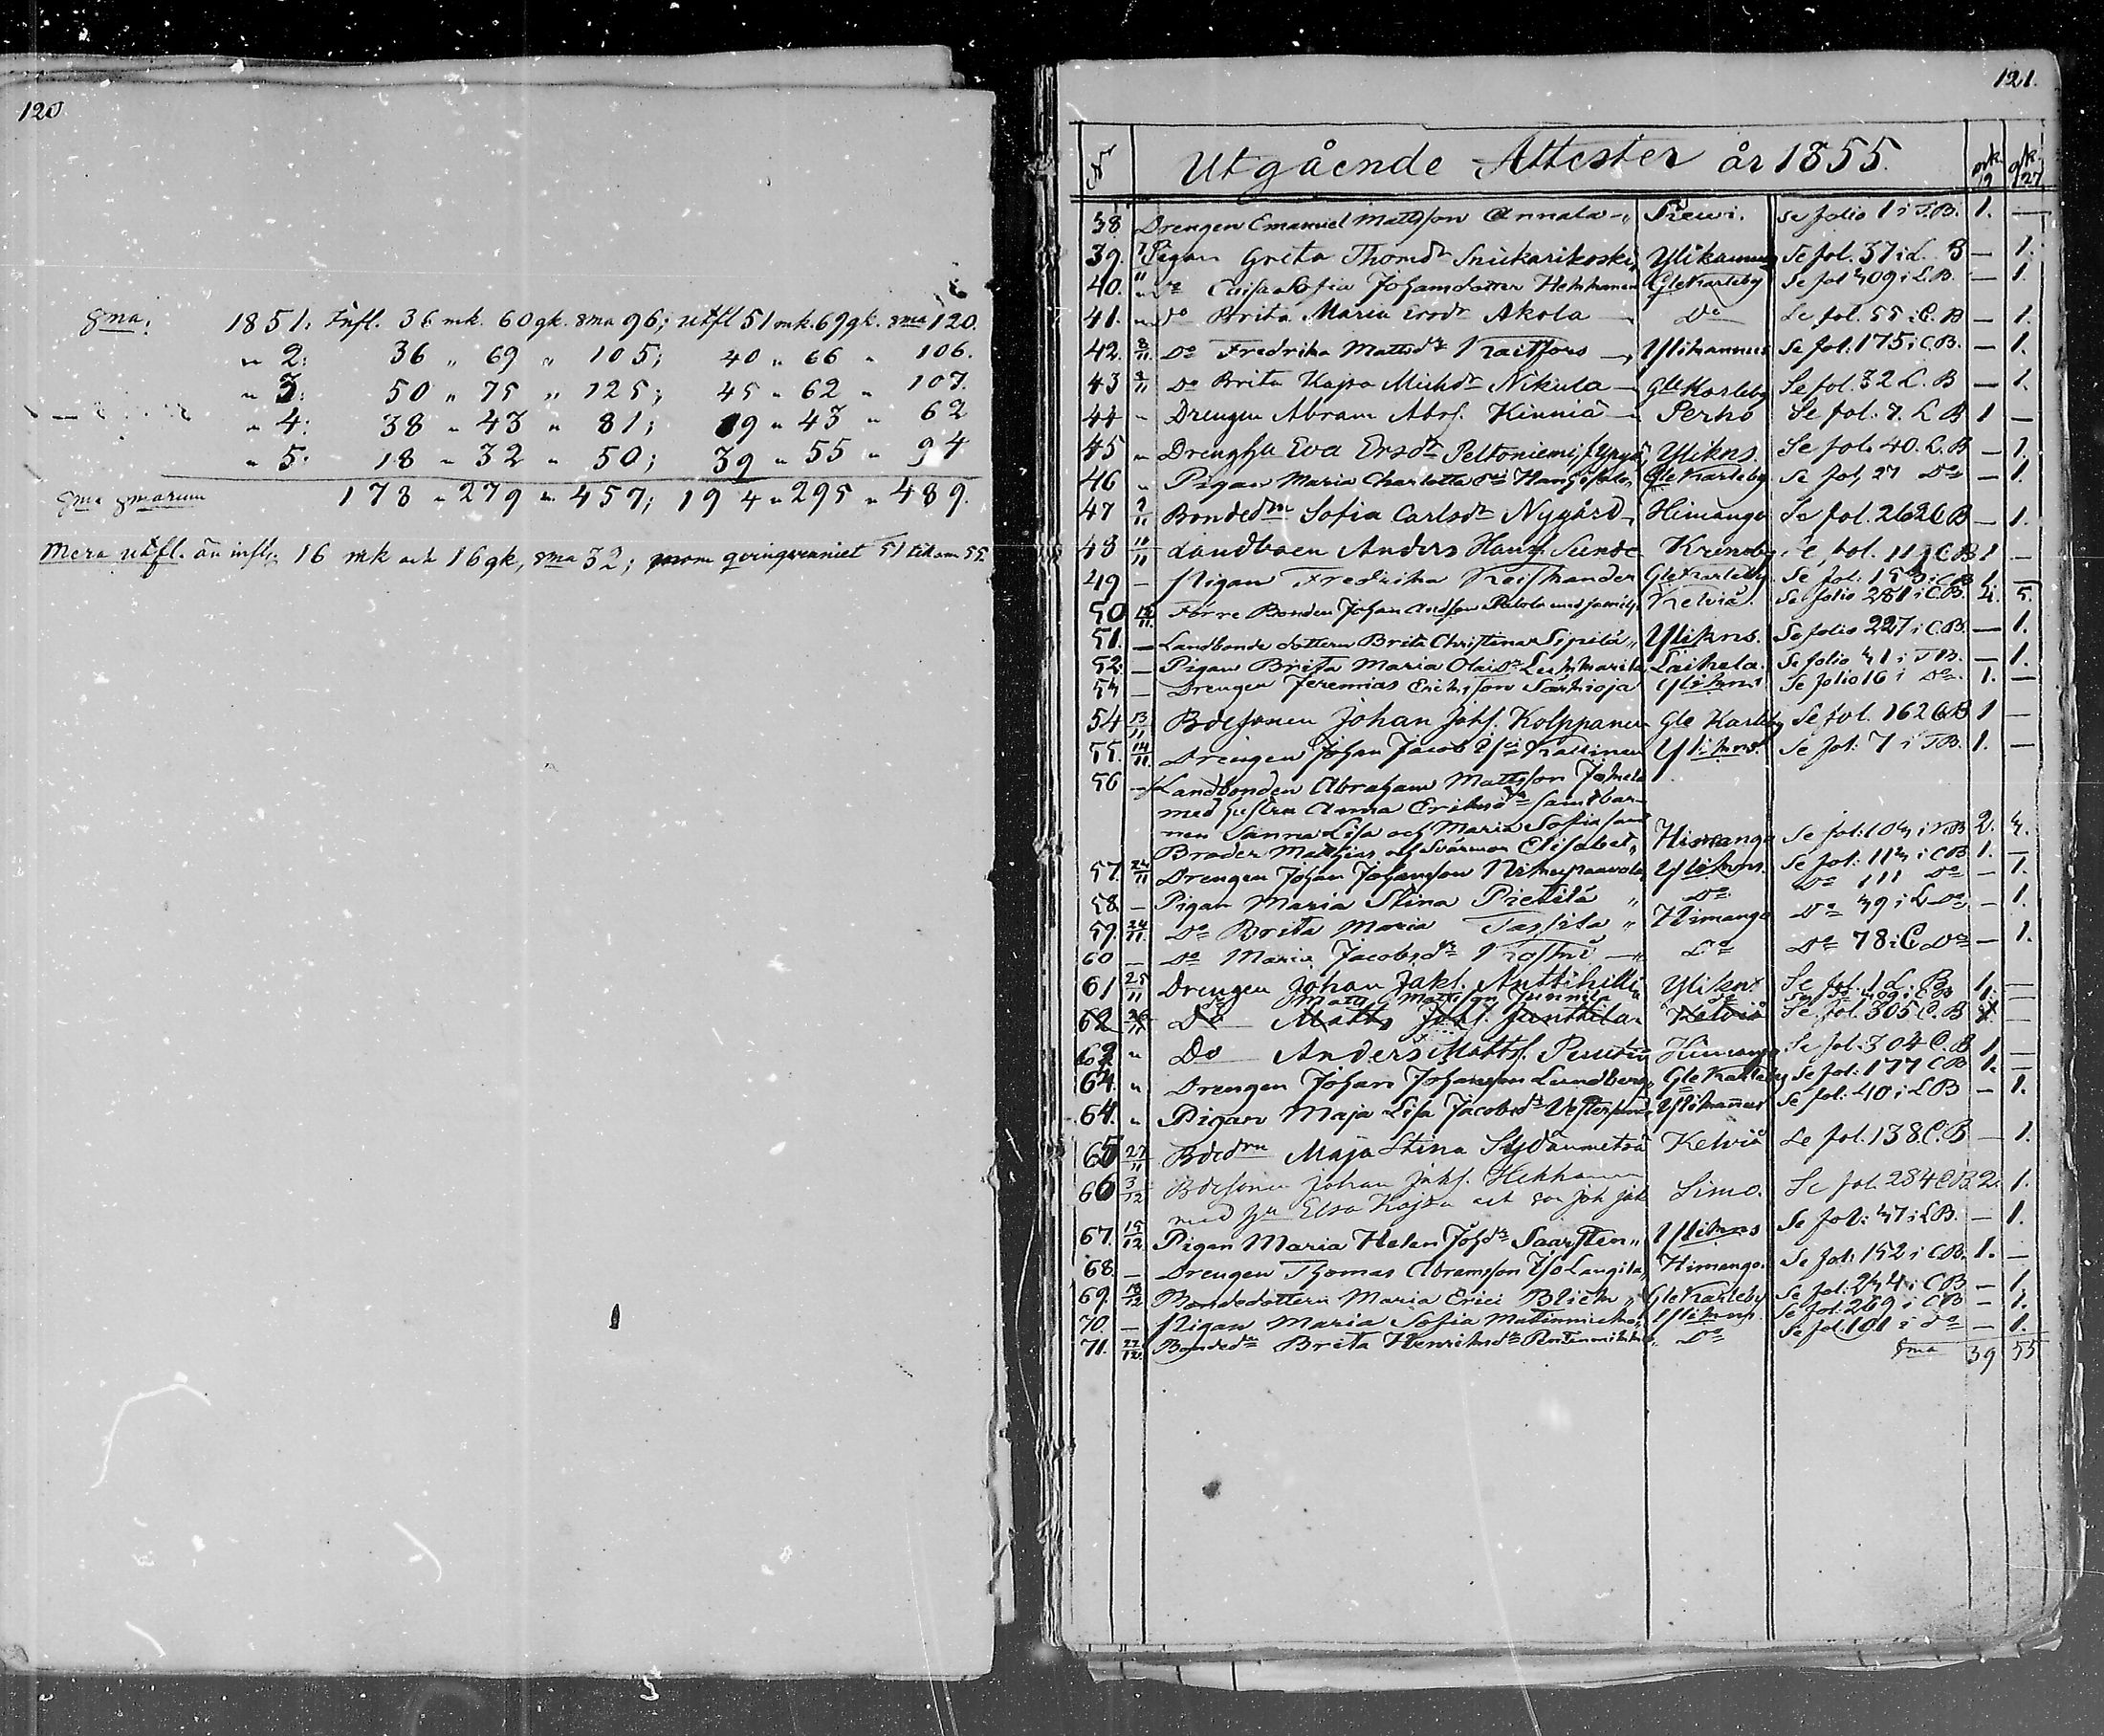 120
Sma: 1851. Infl. 36 mk. 60 gk. sma 96; utfl 51 mk. 69 gk. sma 120.
" 2: 36 " 69 " 105; 40 " 66 " 106.
" 3: 50 " 75 " 125; 45 " 62 " 107.
" 4: 38 " 43 " 81; 19 " 43 " 62
" 5: 18 " 32 " 50; 39 " 55 " 94
Sma smarum 178 " 279 " 457; 194 " 295 " 489.
Mera utfl. än infl. 16 mk och 16 gk, sma 32; qvinqvenniet 51 till om 55.
121.
N Utgående Attester år 1855. mk 19 qk 27
38. Drengen Emanuel Mattsson Annala " Rewi. Se folio 1 i T.B. 1. —
39. Pigan Greta Thomdr Snickarikoski Ylikannus Se fol. 37 i L. B — 1.
40. " Do Caisa Sofia Johansdotter Heikkinen Gle Karleby Se fol 409 i L.B. — 1.
41. " Do Brita Maria Ersdr Akola — Do Se fol. 55 i C. B — 1.
42. 8/11 Do Fredrika Mattsdr Kaitfors — Ylikannus Se fol. 175 i C.B. — 1.
43 9/11 Do Brita Kajsa Michdr Nikula — Gle Karleby Se fol. 32 L. B — 1.
44 " Drengen Abram Abrs. Kinniä — Perho Se fol. 7. L B 1 —
45 " Drenghu Eva Ersdr Peltoniemi Ylikns. Se fol. 40. L. B — 1.
46 " Pigan Maria Charlotta Gle Karleby Se fol. 27 Do — 1.
47 9/11 Bondedrn Sofia Carlsdr Nygård Himango Se fol. 262 C B — 1.
48 10/11 Landboen Anders Hanss. Sunde Kronoby Se fol. 11 C B 1 —
49 — Pigan Fredrika Gle Karleby. Se fol: 153 i CB 1. —
50 12/11 Förre Bonden Johan Andsson Palola med familj Kelviå. Se folio 281 i C.B. 4. 5.
51. — Landbonde dottern Brita Christina Sipilä " Ylikns. Se folio 227 i C.B. — 1.
52. — Pigan Brita Maria Olai Dr Laihela. Se folio 41 i T.B. — 1.
54 — Drengen Jeremias Erichsson Särkioja Ylikns Se folio 16 i Do. 1. —
54 13/11 Bdesonen Johan Johs. Kolppanen Gle Karleby Se fol. 162 C B 1 —
55. 14/11 Drengen Johan Jacob Kallinen Ylikns. Se fol: 7 i T.B. 1. —
56 — Landbonden Abraham Mattsson Jokela
med hustru Anna Eriksdr samt bar-
nen Sanna Lisa och Maria Sofia samt
Broder Matthias och Svärmor Elisabet " Himango Se fol: 104 i C.B 2. 4.
57. 24/11 Drengen Johan Johansson Ylikns. Se fol: 112 i C B 1. —
58 — Pigan Maria Stina Pietilä " Do Do 111 Do — 1.
59. 24/11. Do Brita Maria " Himango Do 49 i L Do — 1.
60 — Do Maria Jacobsdr — Do Do 78 i C Do — 1.
61 25/11 Drengen Johan Jaks. Anttihilli Ylikns Se fol. 1 L. B 1. —
Do Matts Mattsson Junnila Do Se fol 409 i C B 1. —
62 26/11 Do Matts Jaks. Junttila Kelviå Se fol. 305 C. B 1 —
63 " Do Anders Matts. Himango Se fol. 304 C. B 1 —
64. " Drengen Johan Johansson Lundberg Gle Karleby Se fol: 177 C B 1. —
64. " Pigan Maja Lisa Jacobsdr Ylikannus Se fol: 40 i L B — 1.
65 27/11 Bdedrn Maja Stina Sydänmetsä Kelviå Se fol. 138. C. B — 1.
66 3/12 Bdesonen Johan Jaks. Hekkanen
med hu Elsa Kajsa och son Joh Jak Simo. Se fol. 284 C B. 2. 1.
67. 15/12 Pigan Maria Helen Johdr Saarsten " Ylikns Se fol: 47 i L B. — 1.
68. — Drengen Thomas Abramsson Langila " Himango. Se fol: 152 i C.B. 1. —
69. 18/12 Bondedottern Maria Erici Blick " Gle Karleby Se fol: 244 i C B — 1.
70. — Pigan Maria Sofia Ylikns. Se fol: 269 i C B — 1.
71. 22/12. Bondedr Brita Henriksdr Do Se fol. 101 i Do — 1.
Sma 39 55